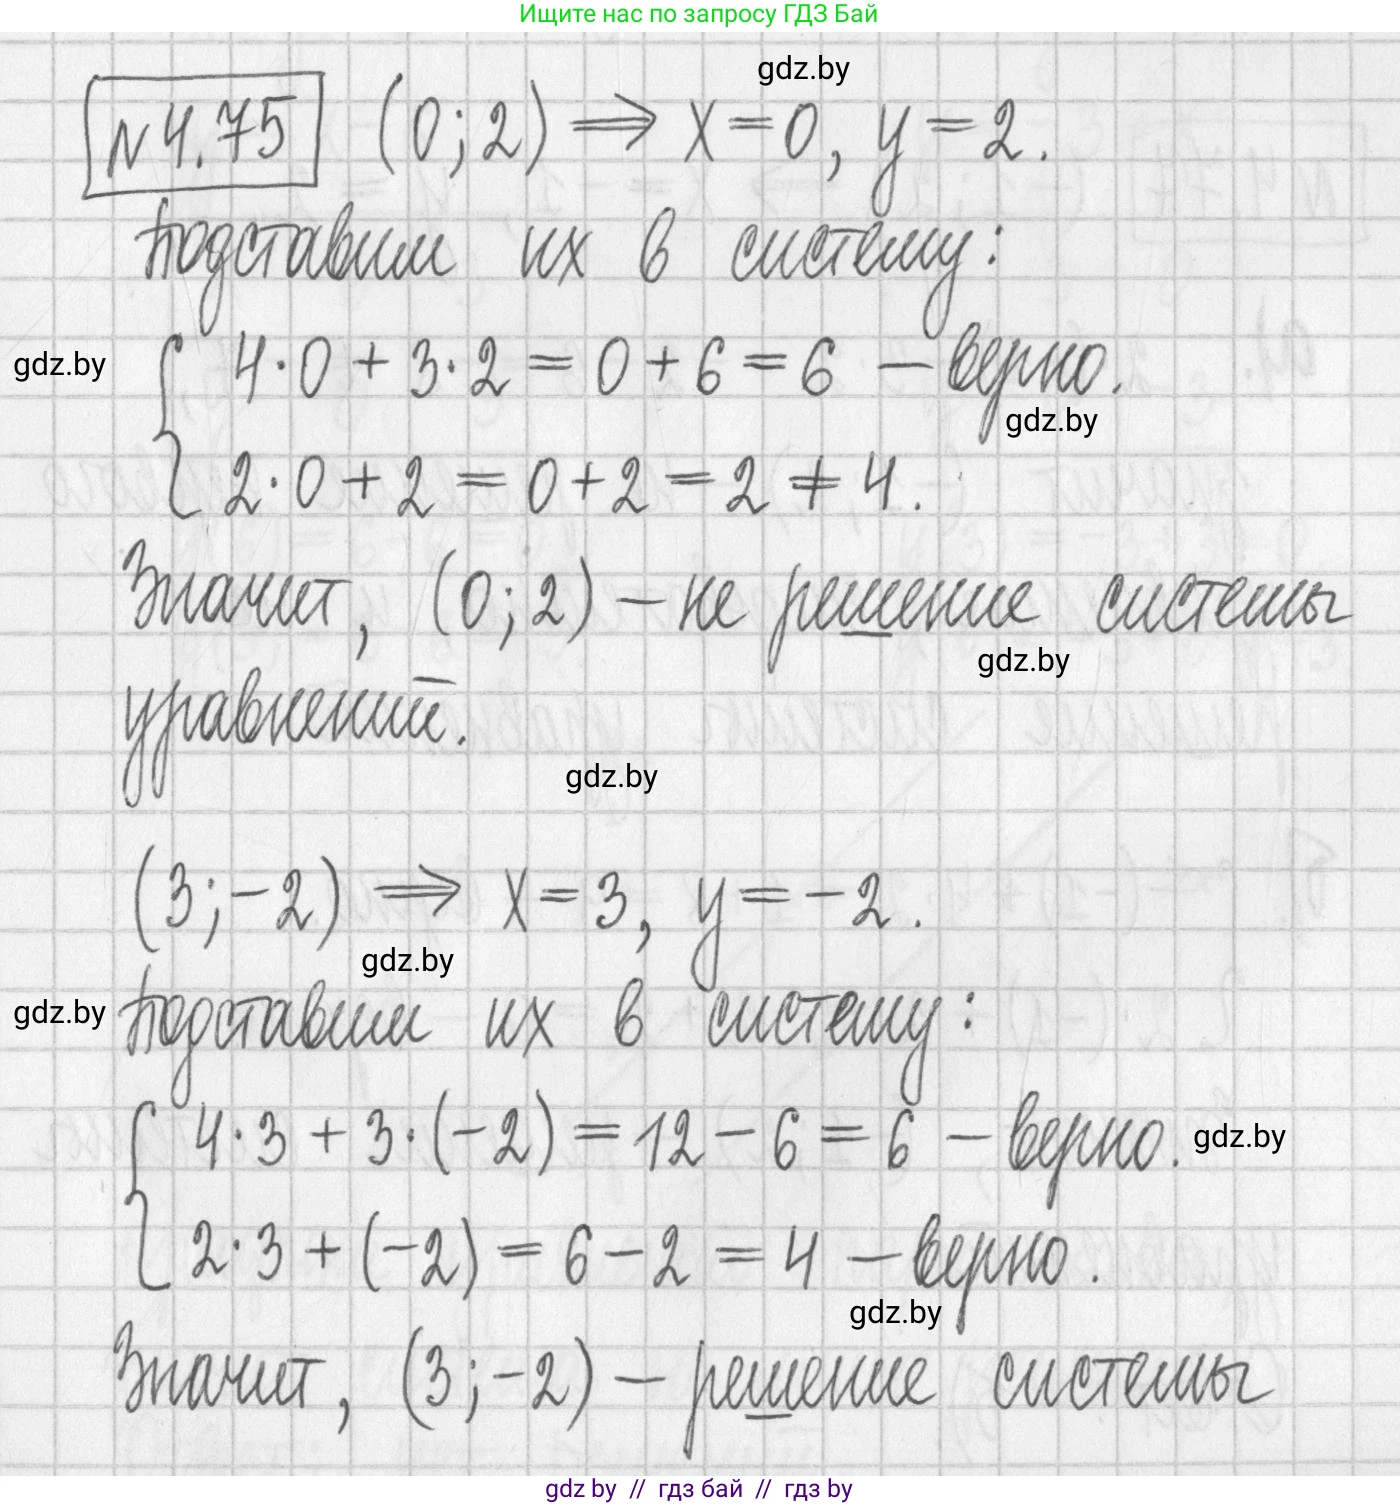 Ищите нас по запросу ГДЗ Бай
gdz.by
№4.75 (0;2) ⟹ x=0, y=2.
Подставим их в систему:
gdz.by
4·0+3·2=0+6=6 – верно.
gdz.by
2·0+2=0+2=2≠4.
Значит, (0;2) – не решение системы
gdz.by
уравнений.
gdz.by
(3;-2) ⟹ x=3, y=-2.
gdz.by
gdz.by
Подставим их в систему:
4·3+3·(-2)=12-6=6 – верно.
gdz.by
2·3+(-2)=6-2=4 – верно.
gdz.by
Значит, (3;-2) – решение системы
gdz by // гдз бай // гдз by